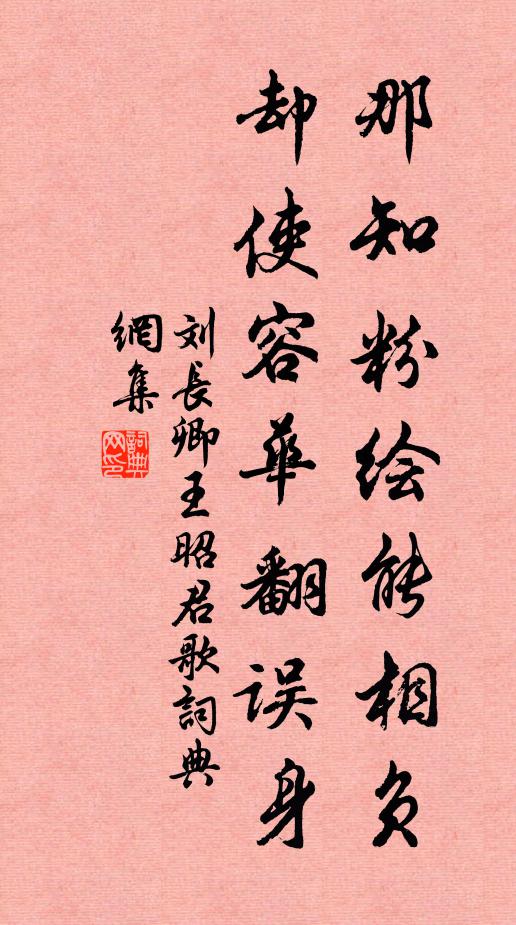 那知粉绘能相负
却使容华翻误身
刘長卿王昭君歌詞典
網集
詞典网印